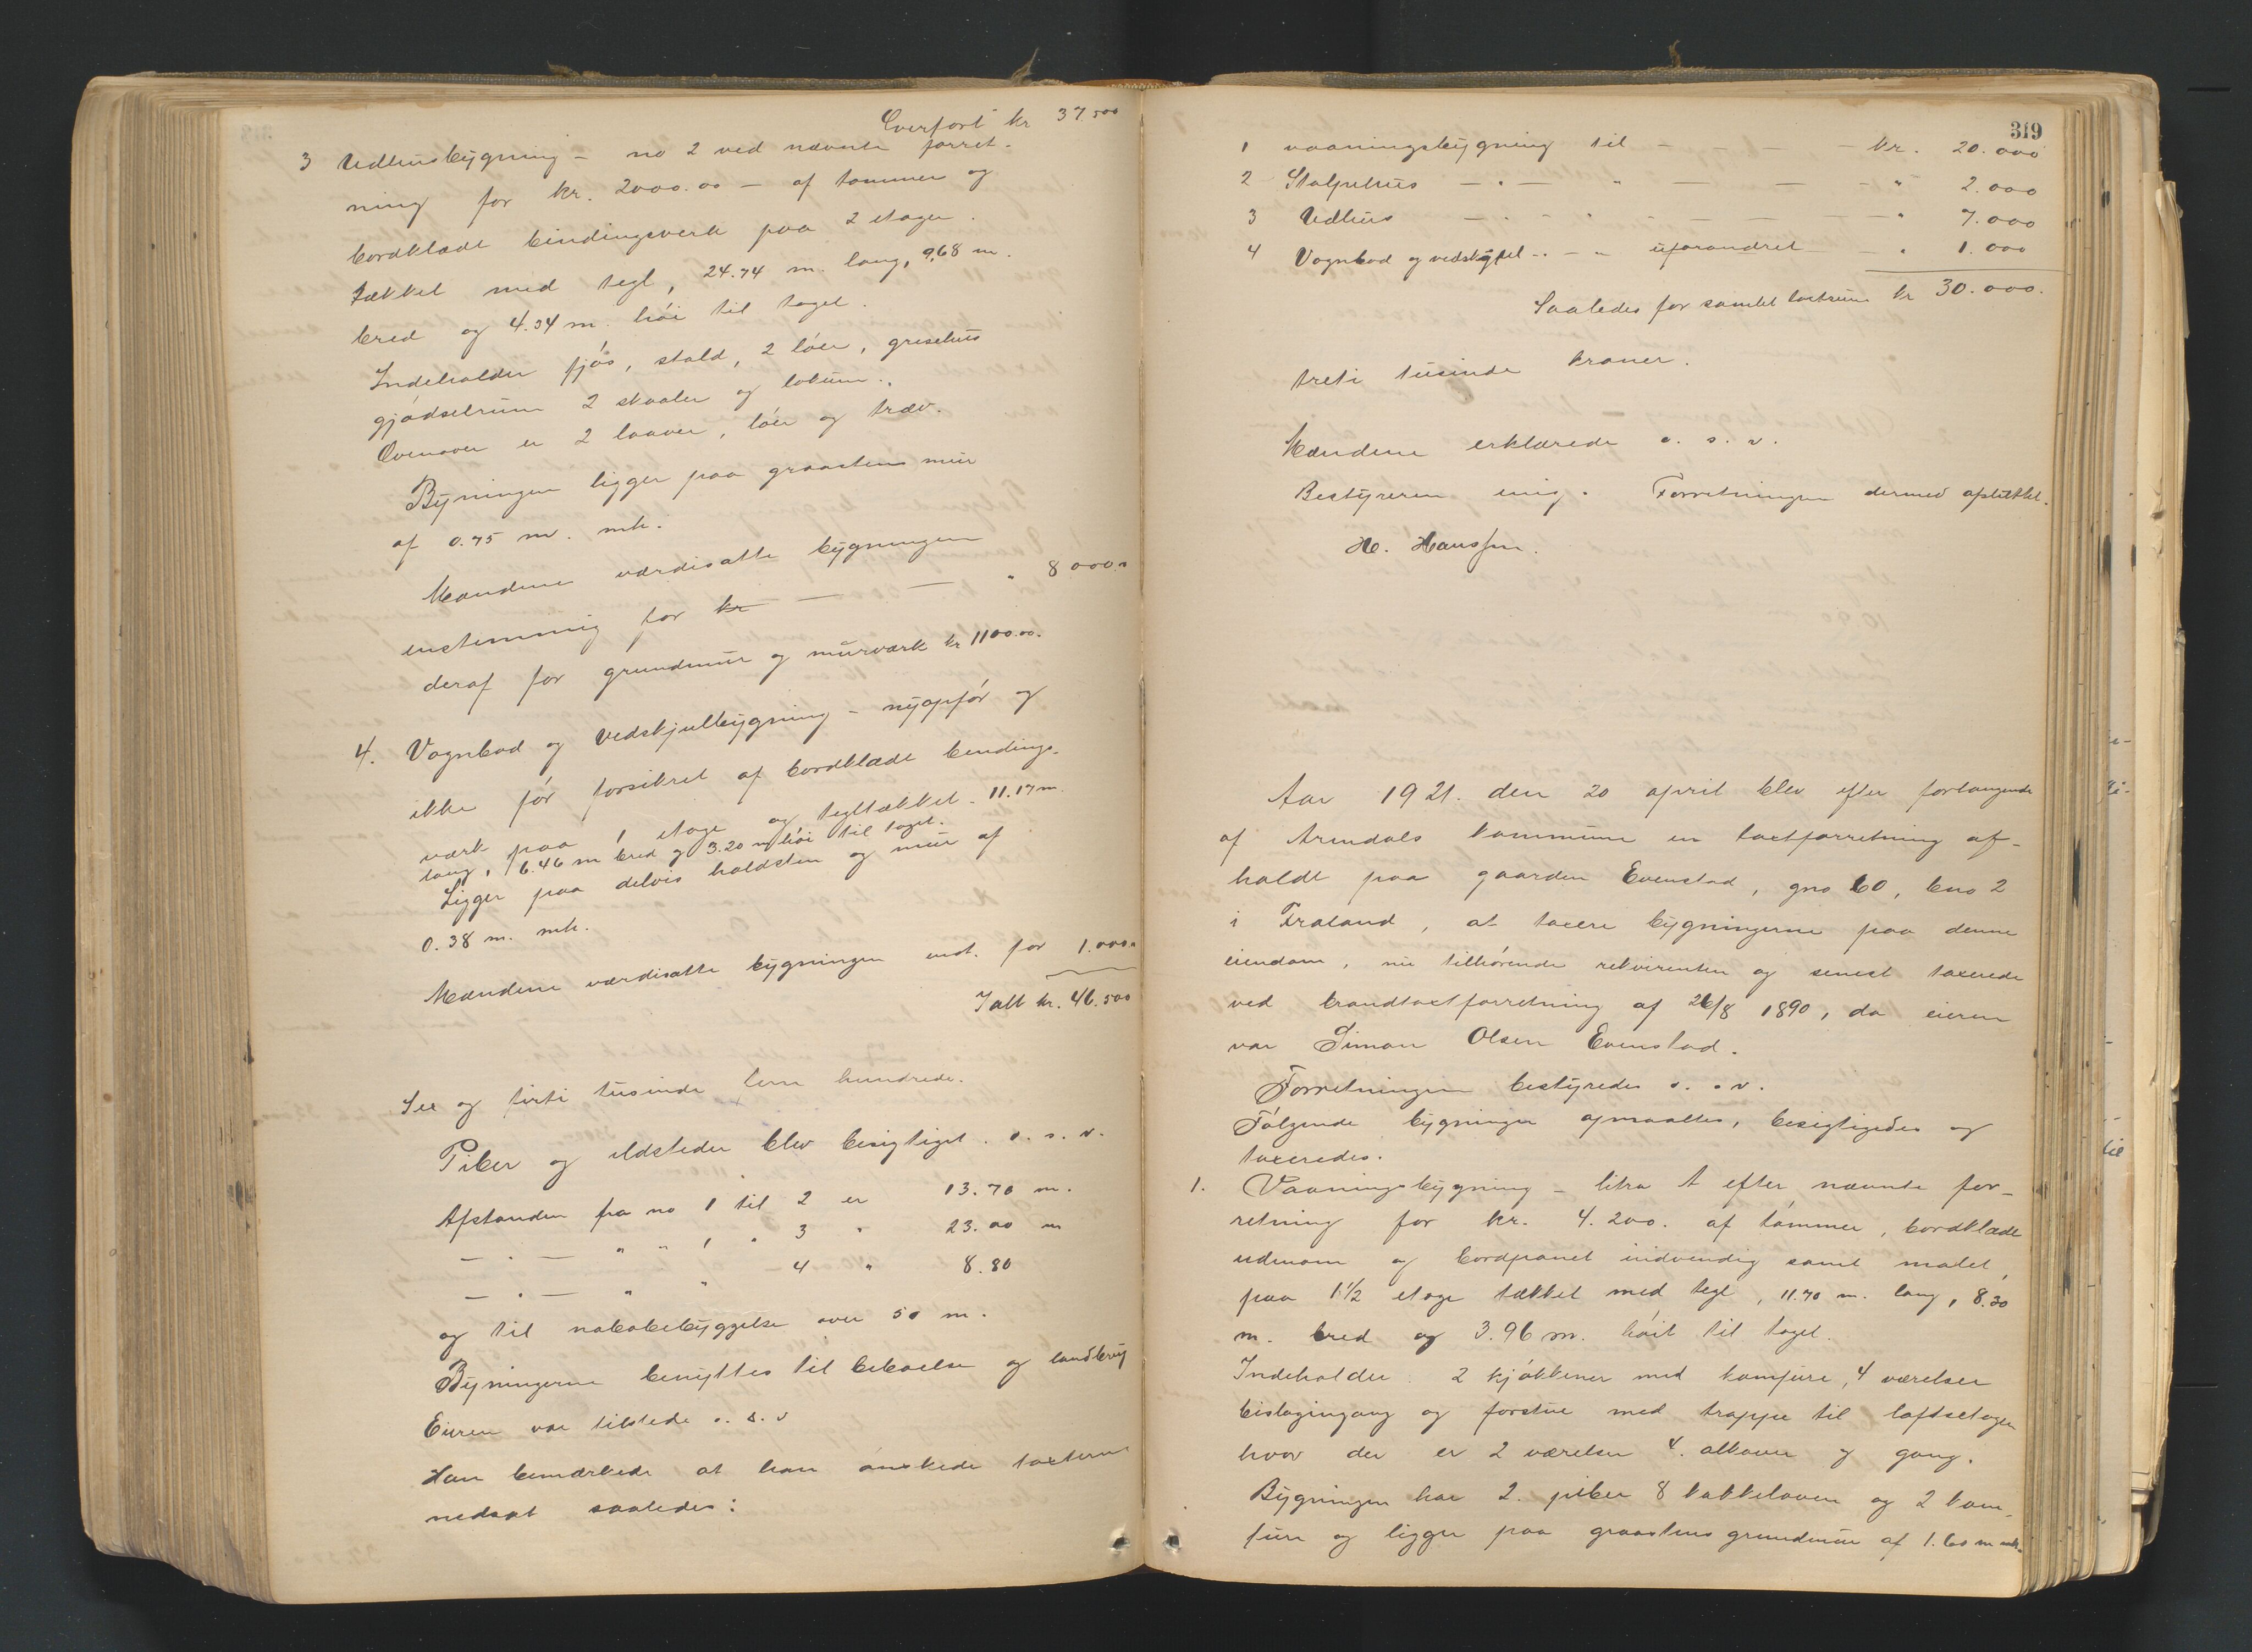 Overført kr 37.500
3 Udhusbygning – no 2 ved nævnte forret-
ning for kr. 2000.00 – af tømmer og
bordklædt bindingsverk paa 2 etager.
tækket med tegl, 24.74 m. lang, 9.68 m.
bred og 4.34 m. høi til taget.
Indeholder fjøs, stald, 2 løer, grisehus
gjødselrum 2 skaaler og lokum.
Ovenover er 2 laaver, løer og træv.
Byningen ligger paa graastens mur
af 0.75 m. mh.
Mændene værdisatte bygningen
enstemmig for kr — — " 8000.
deraf for grundmur og murværk kr 1100.00.
4. Vognbod og vedskjulbygning – nyopfør og
ikke før forsikret af bordklædt bendings-
værk paa 1 etage og tegltækket. 11.17 m
lang, 6.46 m bred og 3.20 m høi til taget.
Ligger paa delvis holdsten og mur af
0.38 m. mh.
Mændene værdisatte bygningen enst. for 1.000.
Ialt kr. 46.500
Sex og firti tusinde fem hundrede.
Piber og ildsteder blev besigtiget. o. s. v.
Afstanden fra no 1 til 2 er 13.70 m.
— " — " " 1 " 3 " 23.00 m
— " — " " 4 " 8.80
og til nabobebyggelse over 50 m.
Byningerne benyttes til beboelse og landbrug
Eieren var tilstede o. s. v
Han bemærkede at han ønskede taxterne
nedsat saaledes:
319
1 vaaningsbygning til — — — — kr. 20.000
2 Stolpehus — " — " — — — " 2.000
3 Udhus — " — " — — — " 7.000
4 Vognbod og vedskjul — " — " uforandret — " 1.000
Saaledes for samlet taxtsum kr 30.000.
treti tusinde kroner.
Mændene erklærede o. s. v.
Bestyreren enig. Forretningen dermed afsluttet.
H. Hanssen.
Aar 1921. den 20 april blev efter forlangende
af Arendals kommune en taxtforretning af-
holdt paa gaarden Evenstad, gno 60, bno 2
i Froland, at taxere bygningerne paa denne
eiendom, nu tilhørende rekvirenten og senest taxerede
ved brandtaxtforretning af 26/8 1890, da eieren
var Simon Olsen Evenstad.
Forretningen bestyredes o. s v.
Følgende bygninger opmaaltes, besigtigedes og
taxeredes.
1. Vaaningsbygning – litra A efter nævnte for-
retning for kr. 4.200. af tømmer, bordklædt
udenom og bordpanet indvendig samt malet,
paa 1 1/2 etage tækket med tegl, 11.70 m. lang, 8.30
m. bred og 3.96 m. høit til taget.
Indeholder: 2 kjøkkener med komfure, 4 værelser
bislagingang og forstue med trappe til loftsetagen
hvor der er 2 værelser 4. alkover og gang.
Bygningen har 2. piber 8 kakkelovne og 2 kom-
fure og ligger paa graastens grundmur af 1.60 m mh.